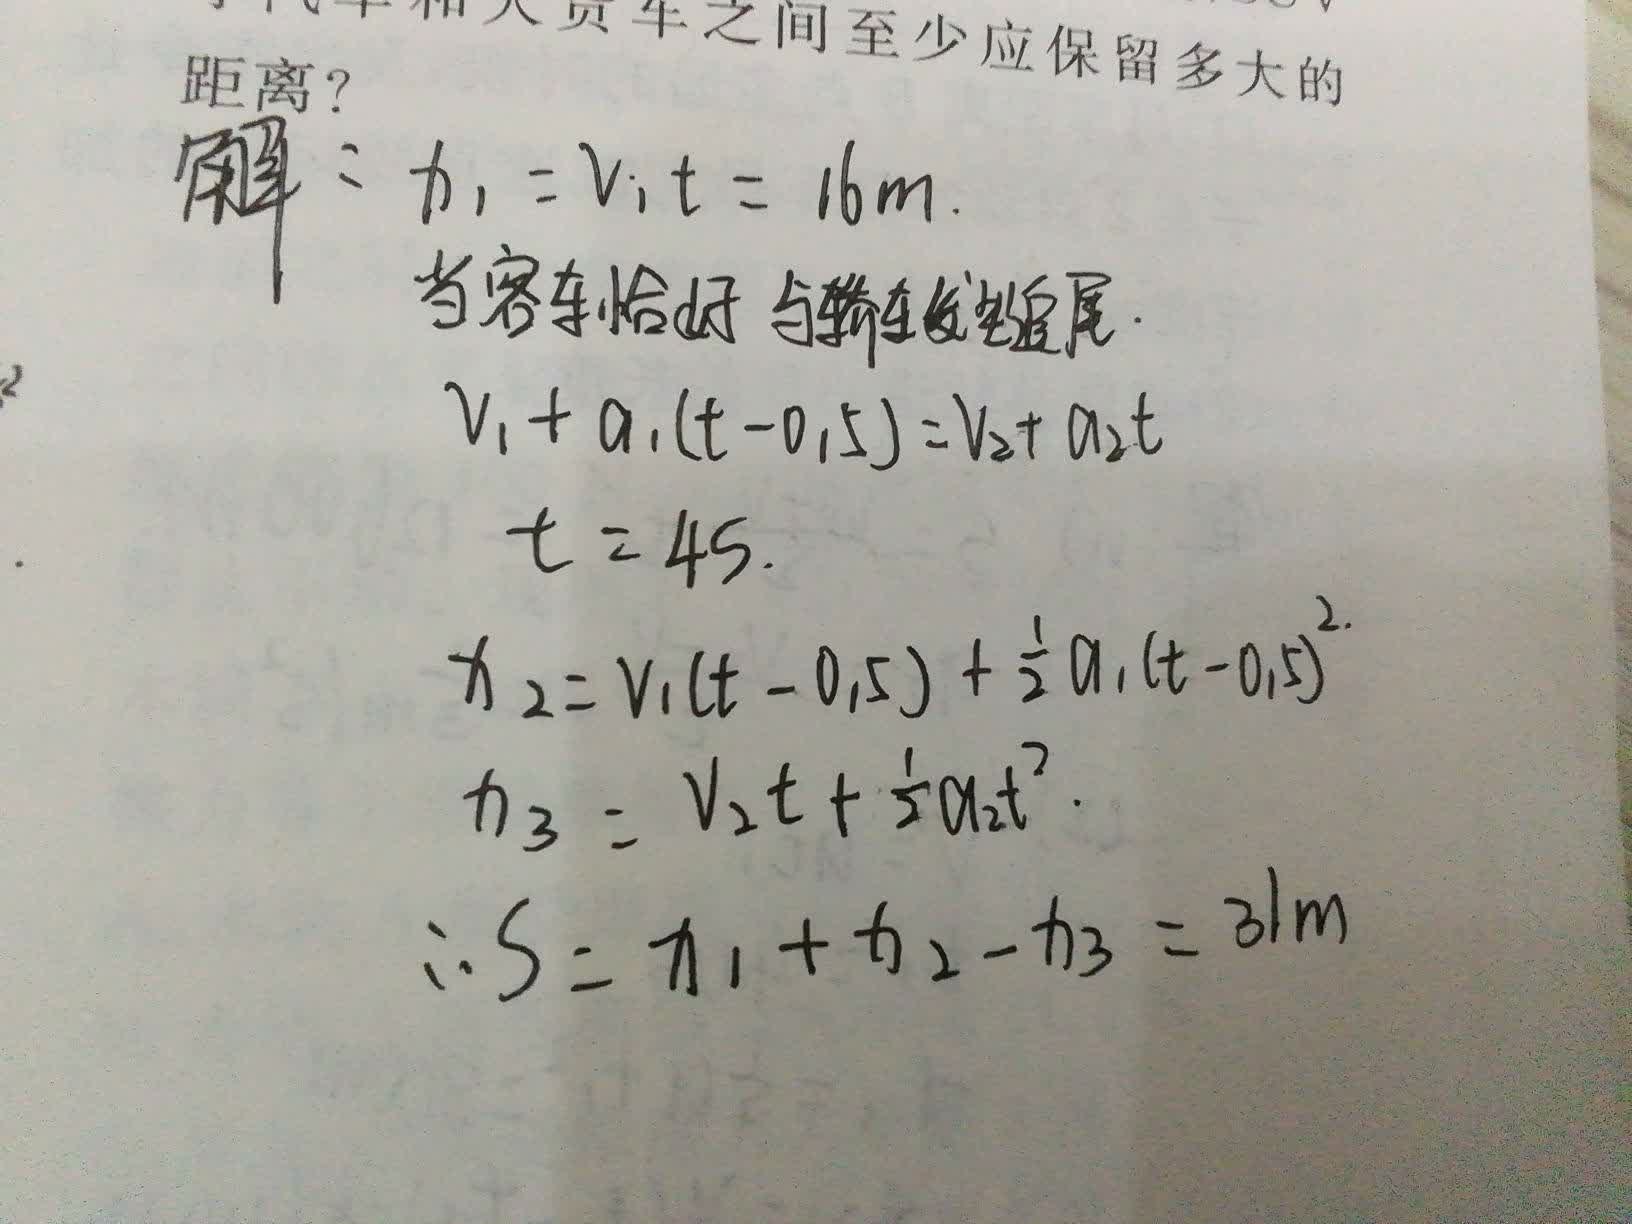 车和大货车之间至少应保留多大的
距离?
解: x₁ = v₁t = 16m.
当客车恰好与轿车发生追尾.
v₁+a₁(t-0.5)=v₂+a₂t
t = 4s.
x₂=v₁(t-0.5)+½a₁(t-0.5)².
x₃ = v₂t+½a₂t².
∴S = x₁+x₂-x₃ = 31m